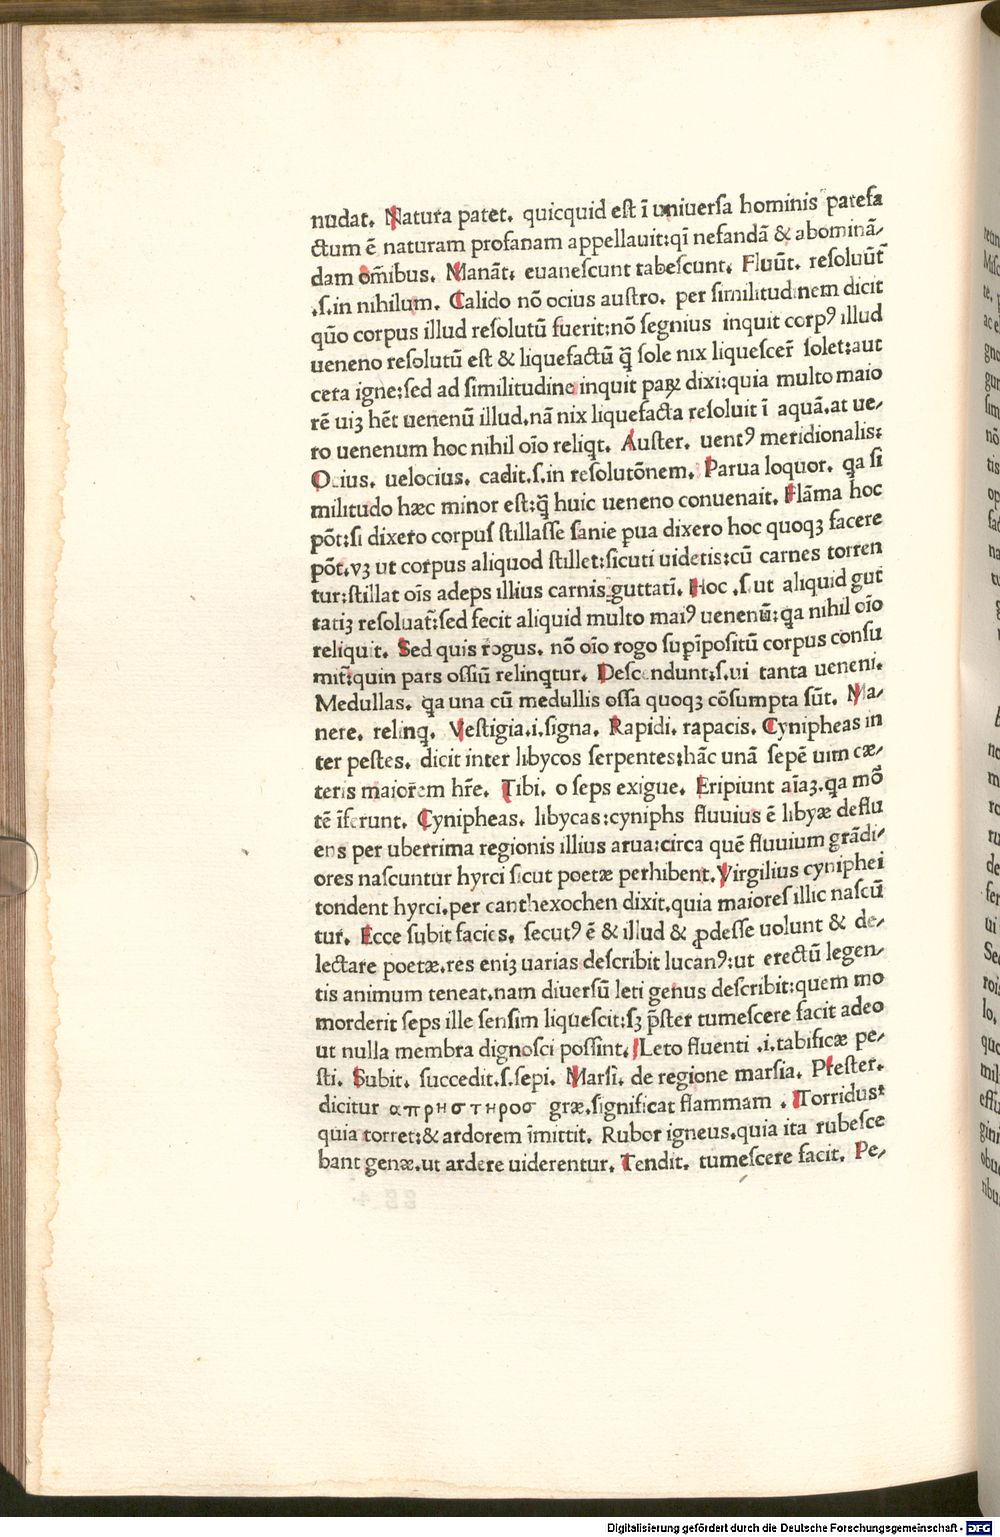 nudat. Natura patet. quicquid eſt ī uniuerſa hominis patefa
ctum ē naturam profanam appellauit:qī nefandā & abominā/
dam om̄ibus. Manāt. euaneſcunt tabeſcunt. Fluūt. reſoluūt
.ſ.in nihilum. Calido nō ocius auſtro. per ſimilitudinem dicit
quo corpus illud reſolutū fuerit:nō ſegnius inquit corpꝰ illud
ueneno reſolutū eſt & liquefactū ꝙ̄ ſole nix liqueſcer̄ ſolet:aut
cera igne:ſed ad ſimilitudine inquit paꝝ dixi:quia multo maio
rē uiꝫ hēt uenenū illud.nā nix liquefacta reſoluit ī aquā.at ue/
ro uenenum hoc nihil oīo reliqt. Auſter. uentꝰ meridionalis:
Ocius. uelocius. cadit.ſ.in reſolutōnem. Parua loquor. qa ſi
militudo hæc minor eſt:ꝙ̄ huic ueneno conuenait. Flāma hoc
pōt:ſi dixero corpuſ ſtillaſſe ſanie ꝑua dixero hoc quoqꝫ facere
pōt.vꝫ ut corpus aliquod ſtillet:ſicuti uidetis:cū carnes torren
tur:ſtillat oīs adeps illius carnis guttatī. Hoc .ſ.ut aliquid gut
tatiꝫ reſoluat̄:ſed fecit aliquid multo maiꝰ uenenū:qa nihil oīo
reliquit. Sed quis rogus. nō oīo rogo ſupīpoſitū corpus conſu
mit̄:quin pars oſſiū relinqtur. Deſcendunt:ſ.ui tanta ueneni.
Medullas. qa una cū medullis oſſa quoqꝫ cōſumpta ſūt. Ma/
nere. relinq. Veſtigia.i.ſigna. Rapidi. rapacis. Cynipheas in
ter peſtes. dicit inter libycos ſerpentes:hāc unā ſepē uim cæ/
teris maiorēm hr̄e. Tibi. o ſeps exigue. Eripiunt aīaꝫ.qa mō
tē īferunt. Cynipheas. libycas:cyniphs fluuius ē libyæ deflu
ens per uberrima regionis illius arua:circa quē fluuium grādi/
ores naſcuntur hyrci ſicut poetæ perhibent. Virgilius cyniphei
tondent hyrci.per canthexochen dixit.quia maioreſ illic naſcū
tur. Ecce ſubit facies. ſecutꝰ ē & illud & ꝓdeſſe uolunt & de/
lectare poetæ.res eniꝫ uarias deſcribit lucanꝰ:ut erectū legen/
tis animum teneat.nam diuerſū leti genus deſcribit:quem mo
morderit ſeps ille ſenſim liqueſcit:ſꝫ p̄ſter tumeſcere facit adeo
ut nulla membra dignoſci poſſint. Leto fluenti .i.tabificæ pe/
ſti. Subit. ſuccedit.ſ.ſepi. Marſi. de regione marſia. Preſter.
dicitur απρηστηροσ græ.ſignificat flammam . Torridus:
quia torret:& ardorem īmittit. Rubor igneus.quia ita rubeſce
bant genæ.ut ardere uiderentur. Tendit. tumeſcere facit. Pe/
Digitalisierung gefördert durch die Deutsche Forschungsgemeinschaft - DFG